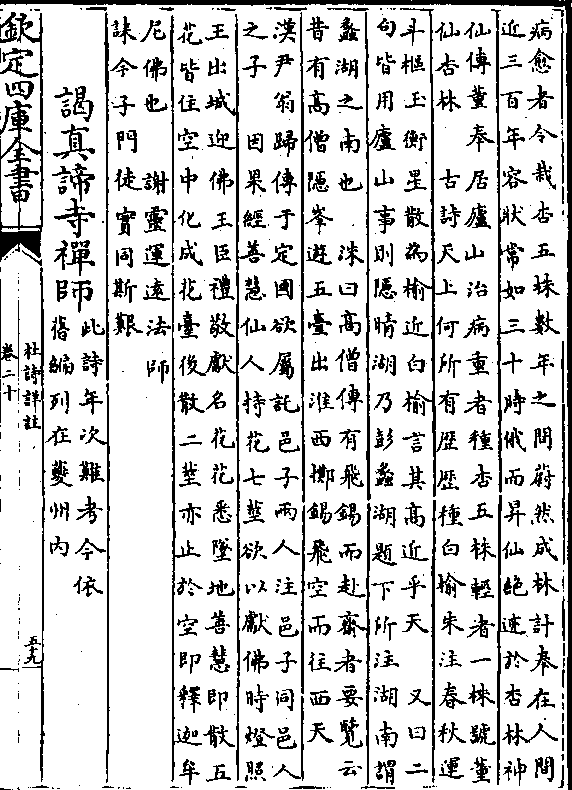 病愈者令栽杏五株數年之間蔚然成林計奉在人間
近三百年容狀常如三十時俄而昇仙絕迹於杏林神
仙傳董奉居廬山治病重者種杏五株輕者一株號董
仙杏林　古詩天上何所有歴歴種白榆朱注春秋運
斗樞玉衡星散為榆近白榆言其髙近乎天　又曰二
句皆用廬山事則隠晴湖乃彭蠡湖題下所注湖南謂
蠡湖之南也　洙曰髙僧傳有飛錫而赴齋者要覽云
昔有髙僧隠峯遊五臺出淮西擲錫飛空而往西天
漢尹翁歸傳于定國欲屬託邑子兩人注邑子同邑人
之子　因果經善慧仙人持花七莖欲以獻佛時燈照
王出城迎佛王臣禮敬獻名花花悉墮地善慧即散五
花皆住空中化成花臺後散二莖亦止於空即釋迦牟
尼佛也　謝靈運逺法師
誄今子門徒實同斯艱
謁真諦寺禪師
此詩年次難考今依
舊編列在夔州内
欽定四庫全書
杜詩詳註
卷二十
五十九